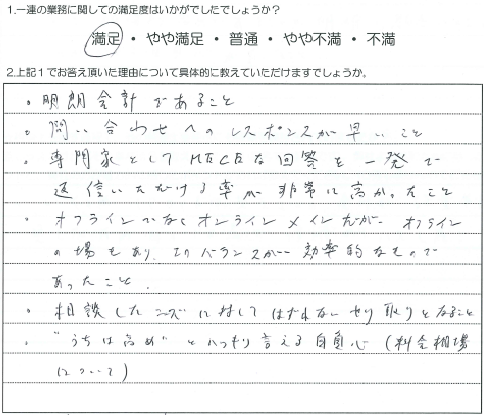 1.一連の業務に関しての満足度はいかがでしたでしょうか？
満足・やや満足・普通・やや不満・不満
2.上記１でお答え頂いた理由について具体的に教えていただけますでしょうか。
・明朗会計であること
・問い合わせへのレスポンスが早いこと
・専門家としてMECEな回答を一発で
返信いただける率が非常に高かったこと
・オフラインでなくオンラインメインだがオフライン
の場もあり、そのバランスが効率的なもので
あったこと。
・相談したニーズに対してはずれないやり取りとなること
・"うちは高め"とハッキリ言える自負心(料金相場
について)